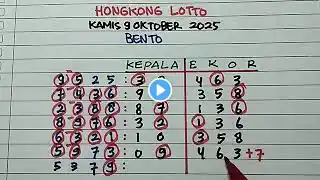 HONGKONG LOTTO
KAMIS 9 OKTOBER 2025
BENTO
KEPALA E K O R
9 5 2 5 : 3 4 6 3
7 4 3 6 : 9 3 5 8
2 3 8 8 : 8 7 1 3 6
8 9 7 6 : 3 1 3 6
6 3 2 1 : 1 0 3 5 8
5 9 7 3 : 0 9 4 6 3 +7
5 3 7 9 :